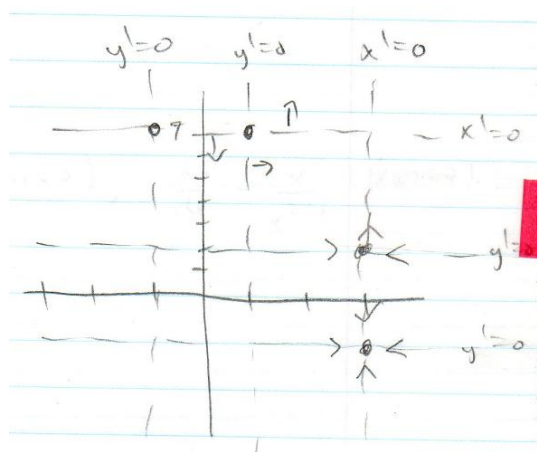 y'=0 y'=0 x'=0
7 x'=0
y'=0
y'=0